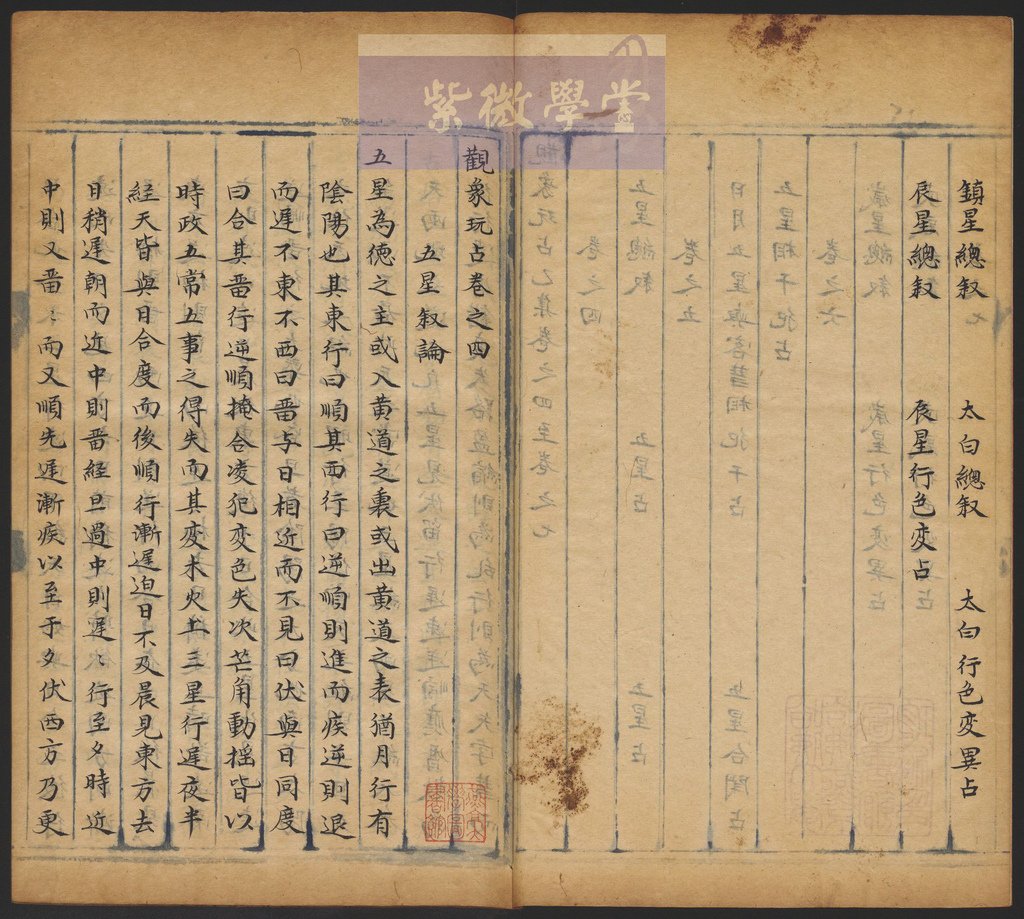 紫微學堂
鎮星總叙 太白總叙 太白行色变異占
辰星總叙 辰星行色变占
觀象玩占卷之四
五星叙論
五星為德之主或入黄道之裏或出黄道之表猶月行有
陰陽也其東行曰順其西行曰逆順則進而疾逆則退
而遲不東不西曰畱与日相近而不見曰伏與日同度
曰合其畱行逆順掩合凌犯变色失次芒角動摇皆以
時政五常五事之得失而其变木火土三星行遲夜半
経天皆與日合度而後順行漸遲迫日不及晨見東方去
日稍遲朝而近中則畱経旦過中則遲〻行至夕時近
中則又畱〻而又順先遲漸疾以至于夕伏西方乃更